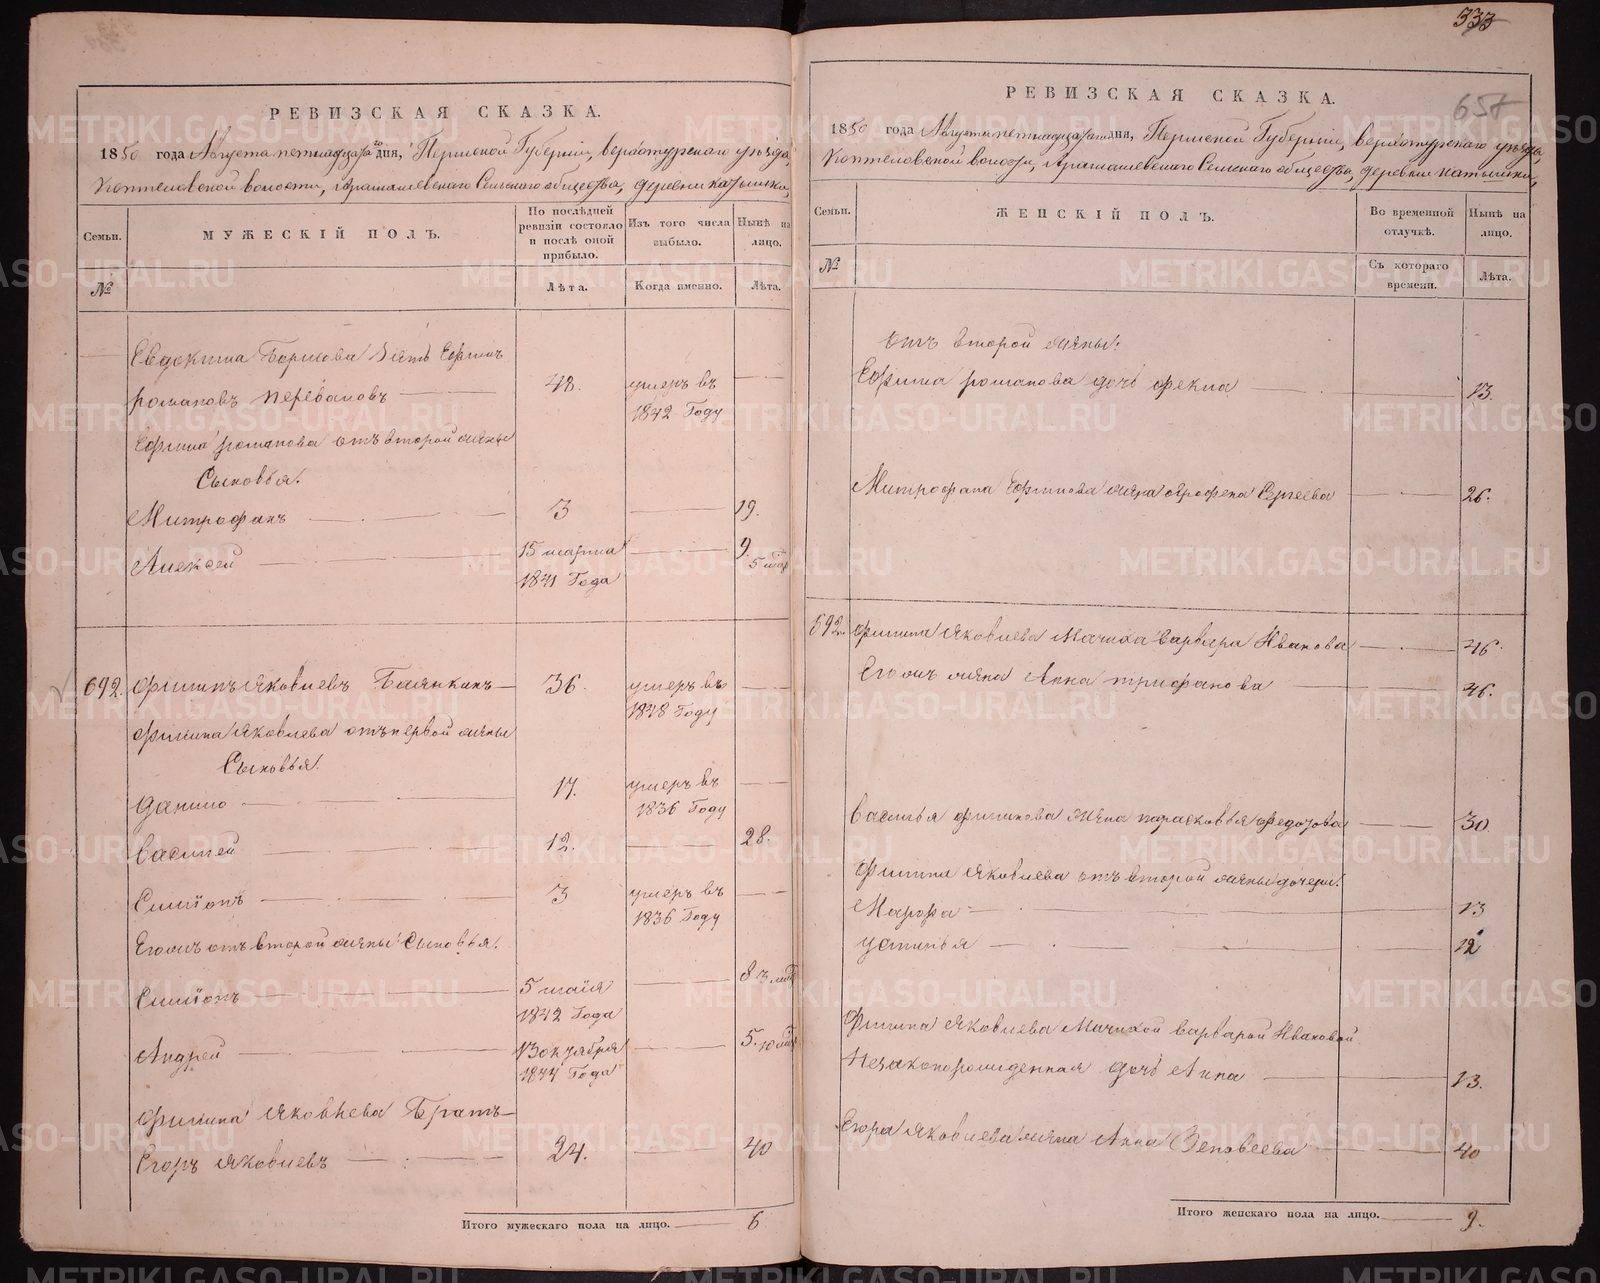 333
657
РЕВИЗСКАЯ СКАЗКА.
1850 года Августа петнадцатаго дня, Пермской Губерніи, верхотурскаго уѣзда,
Коптеловской волости, Арамашевскаго Сельскаго общества, деревни катышки,
Семьи.
№
МУЖЕСКІЙ ПОЛЪ.
По послѣдней ревизіи состояло и послѣ оной прибыло.
Лѣта.
Изъ того числа выбыло.
Когда именно.
Нынѣ на лицо.
Лѣта.
Евдокима Борисова зять Ефимъ
романовъ переваловъ 48. умеръ въ 1842 Году
Ефима романова отъ второй жены
Сыновья.
Митрофанъ 3 19.
Алексей 15 марта 1841 Года 9. 5 мѣс
692. филипъ яковлевъ Баянкинъ 36. умеръ въ 1848 Году
филипа яковлева отъ первой жены
Сыновья.
данило 17. умеръ въ 1836 Году
василей 12. 28.
Симіонъ 3 умеръ въ 1836 Году
Его же отъ второй жены Сыновья.
Симіонъ 5 маія 1842 Года 8 3 мѣс
Андрей 13 октября 1844 Года 5. 10 мѣс
филипа яковлева Братъ
Егоръ яковлевъ 24. 40
Итого мужескаго пола на лицо. 6
РЕВИЗСКАЯ СКАЗКА.
1850 года Августа петнадцатаго дня, Пермской Губерніи, верхотурскаго уѣзда
Коптеловской волости, Арамашевскаго Сельскаго общества, деревни катышки,
Семьи.
№
ЖЕНСКІЙ ПОЛЪ.
Во временной отлучкѣ.
Съ котораго времени.
Нынѣ на лицо.
Лѣта.
отъ второй жены:
Ефима романова дочь фекла 13.
Митрофана Ефимова жена Агрофена Сергеева 26.
692. филипа яковлева Мачиха варвара Иванова 46.
Его же жена Анна трифанова 46.
василья филипова жена парасковья федотова 30.
филипа яковлева отъ второй жены дочери:
Марфа 13
устинья 12
филипа яковлева Мачихой варварой Ивановой
Незаконорожденная дочь Анна 13.
Егора яковлева жена Анна Зеновеева 40
Итого женскаго пола на лицо. 9.
METRIKI.GASO-URAL.RU